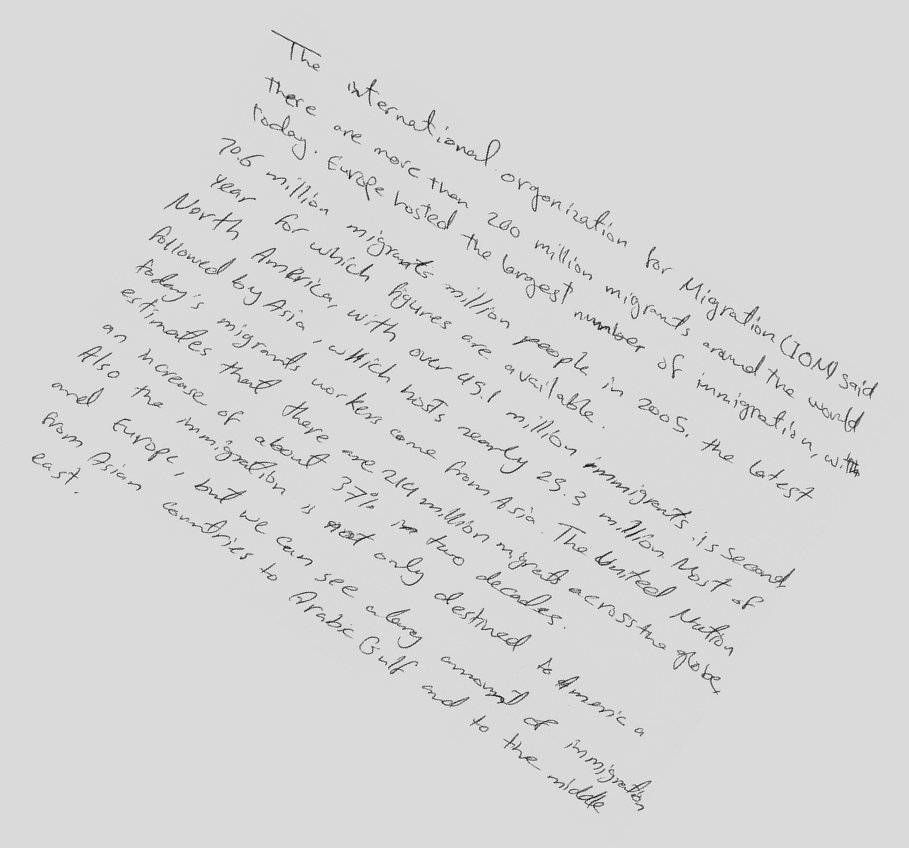 The international organization for Migration (IOM) said
there are more than 200 million migrants around the world
today. Europe hosted the largest number of immigration, with
70.6 million migrants million people in 2005. the latest
year for which figures are available.
North America, with over 45.1 million immigrants. is second
followed by Asia, which hosts nearly 25.3 million. Most of
today's migrants workers come from Asia. The United Nation
estimates that there are 214 million migrants across the globe,
an increase of about 37% in two decades.
Also the immigration is not only destined to America a
and Europe, but we can see a larg amount of immigration
from Asian countries to Arabic Gulf and to the middle
east.